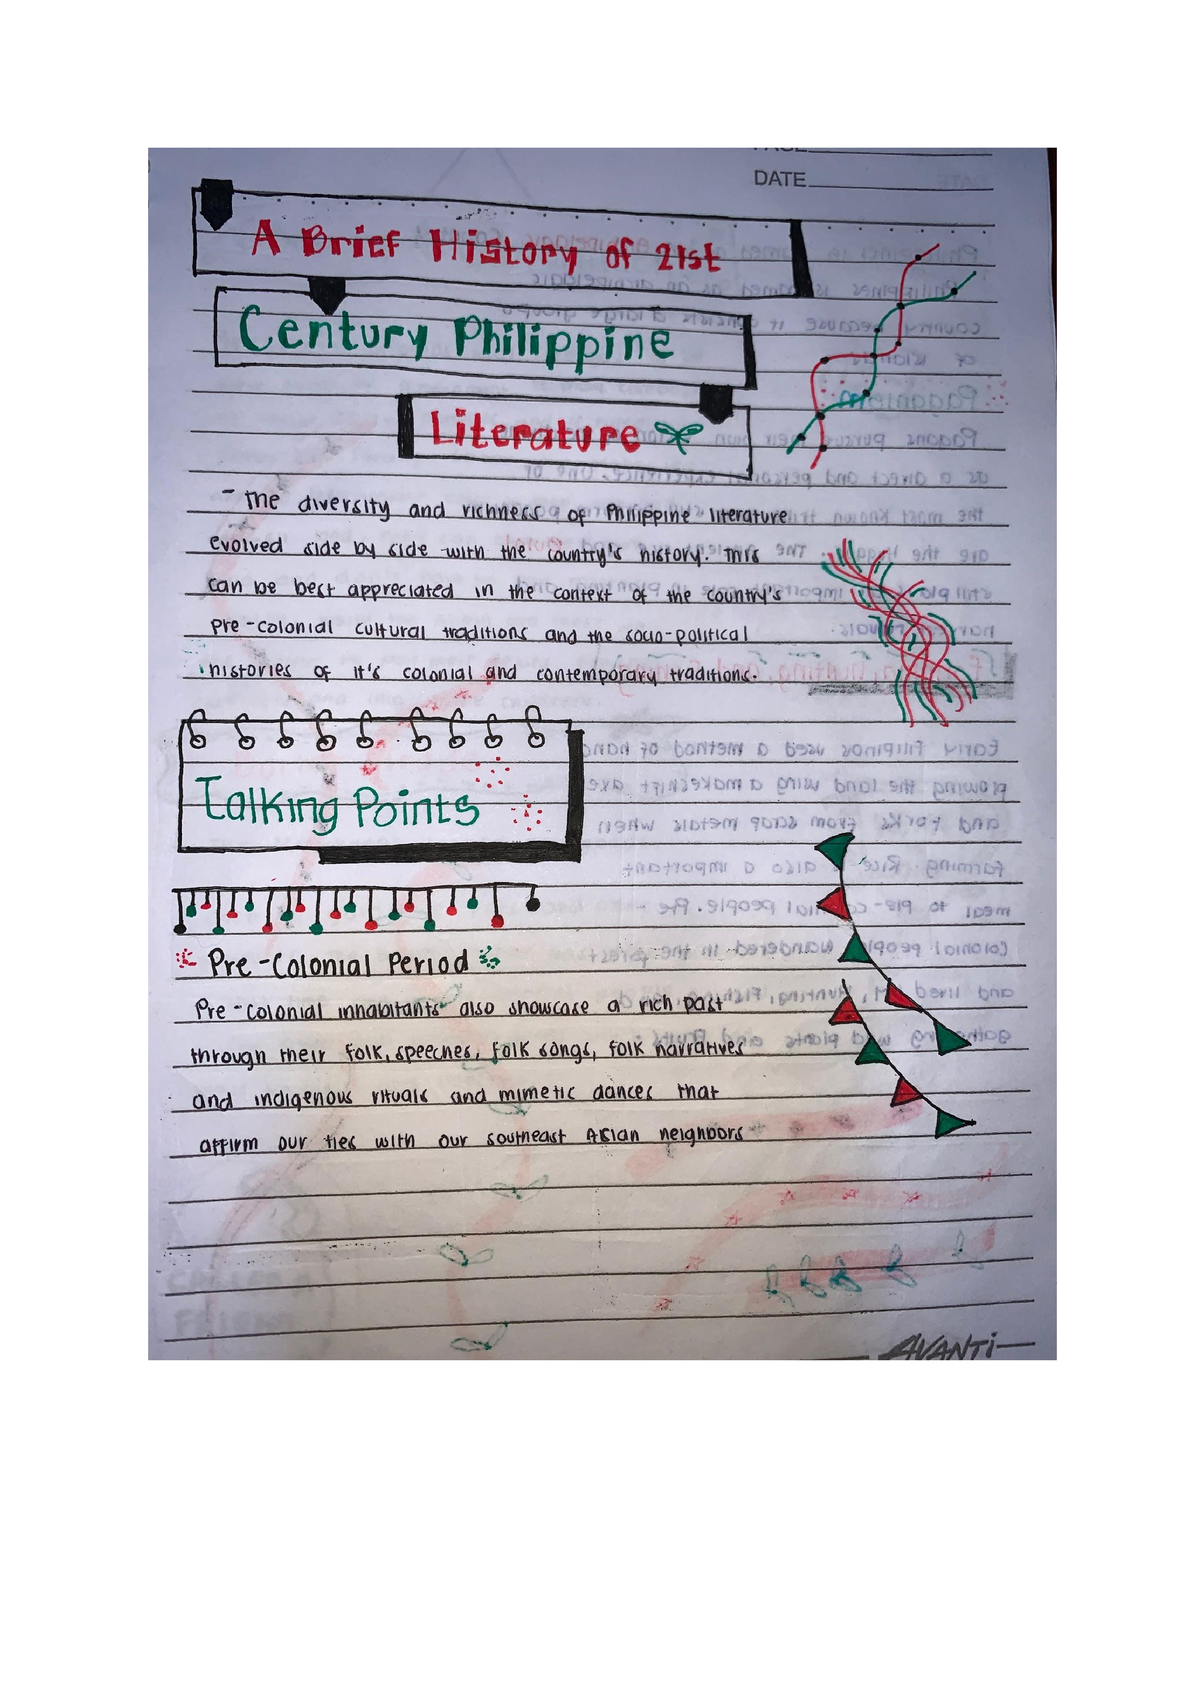 PAGE
DATE
A Brief History of 21st
Century Philippine
Literature
- The diversity and richness of Philippine literature
evolved side by side with the country's history. This
can be best appreciated in the context of the country's
pre-colonial cultural traditions and the socio-political
histories of it's colonial and contemporary traditions.
Talking Points
Pre-Colonial Period
Pre-Colonial inhabitants also showcase a rich past
through their folk, speeches, folk songs, folk narratives
and indigenous rituals and mimetic dances that
affirm our ties with our southeast Asian neighbors
AVANTi